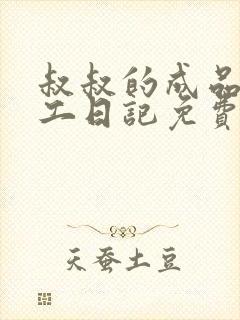 叔叔的成品
工日記免費
天蚕土豆